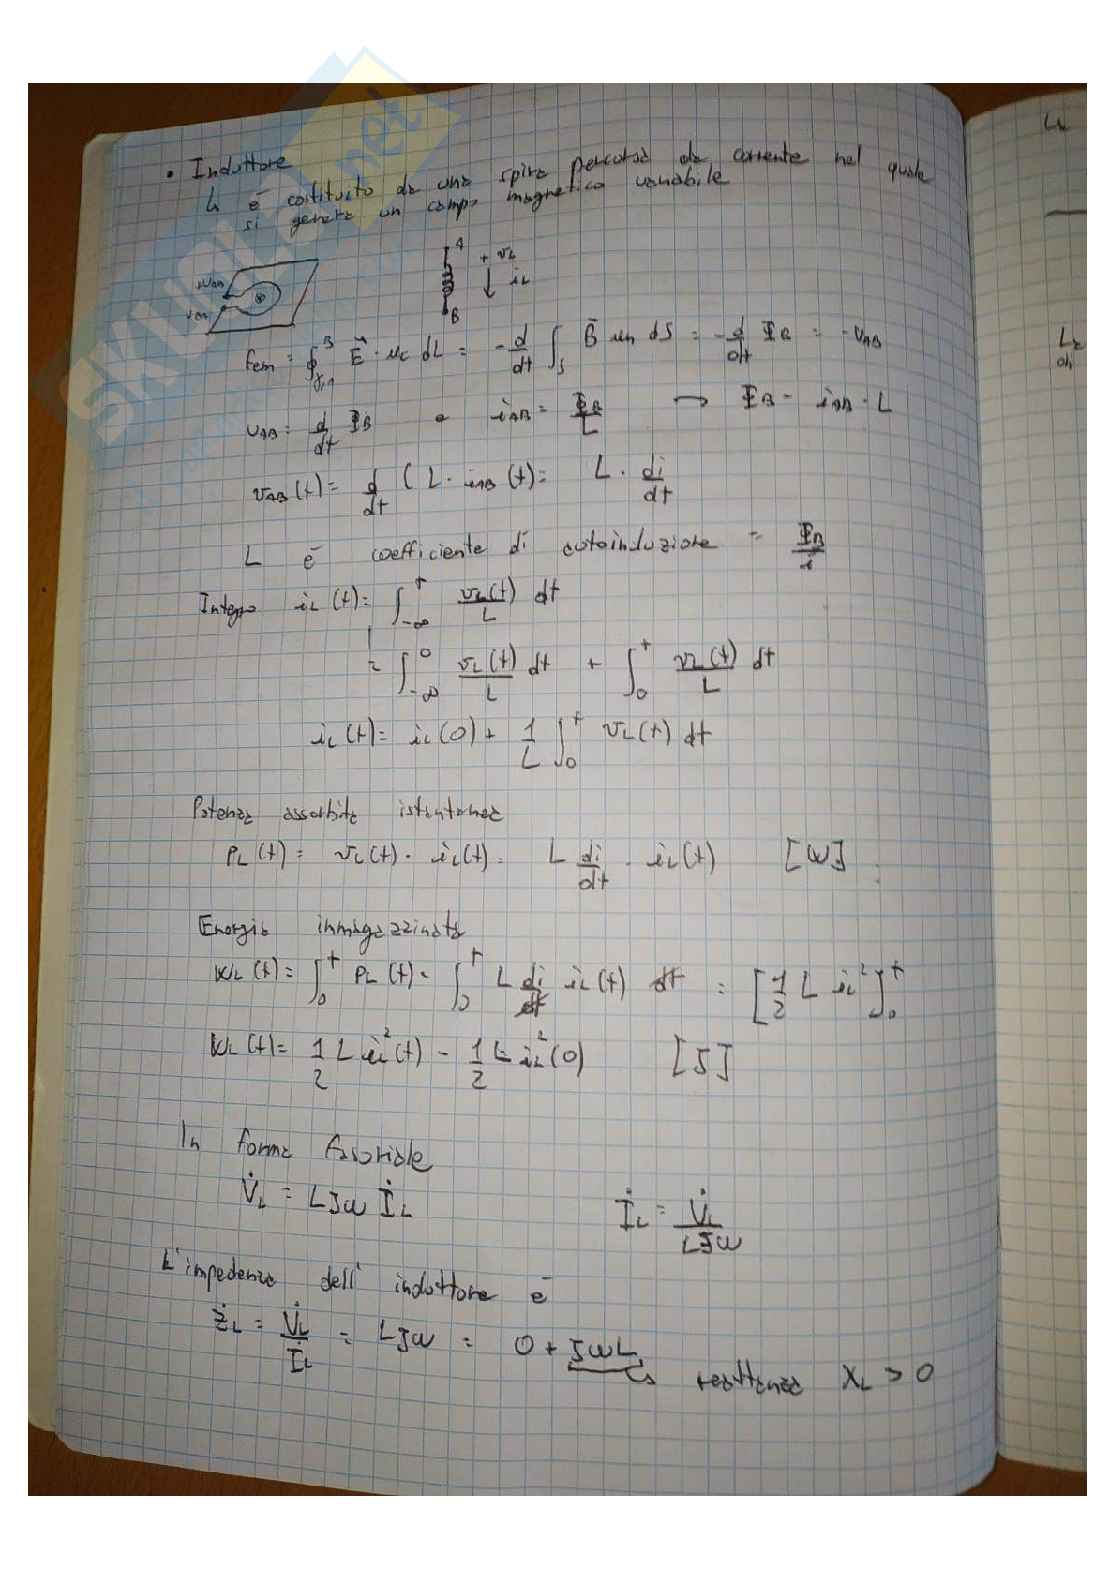 • Induttore
L è costituito da una spira percorsa da corrente nel quale
si genera un campo magnetico variabile
A
+ vL
iL
B
fem = ∮γ,A^B E⃗ · uc dL = - d/dt ∫S B⃗ un dS = - d/dt ΦB = - vAB
vAB = d/dt ΦB e iAB = ΦB/L → ΦB = iAB · L
vAB(t) = d/dt ( L · iAB (t) = L · di/dt
L è coefficiente di autoinduzione = ΦB/i
Integro iL(t) = ∫-∞^t vL(t)/L dt
= ∫-∞^0 vL(t)/L dt + ∫0^t vL(t)/L dt
iL(t) = iL(0) + 1/L ∫0^t vL(t) dt
Potenza assorbita istantanea
PL(t) = vL(t) · iL(t) = L di/dt · iL(t) [W]
Energia immagazzinata
WL(t) = ∫0^t PL(t) = ∫0^t L di/dt iL(t) dt = [1/2 L iL²]0^t
WL(t) = 1/2 L iL²(t) - 1/2 L iL²(0) [J]
In forma fasoriale
V̇L = LJω İL İL = V̇L/LJω
L'impedenza dell'induttore è
ŻL = V̇L/İL = LJω = 0 + JωL → reattanza XL > 0
SKUOLA.net